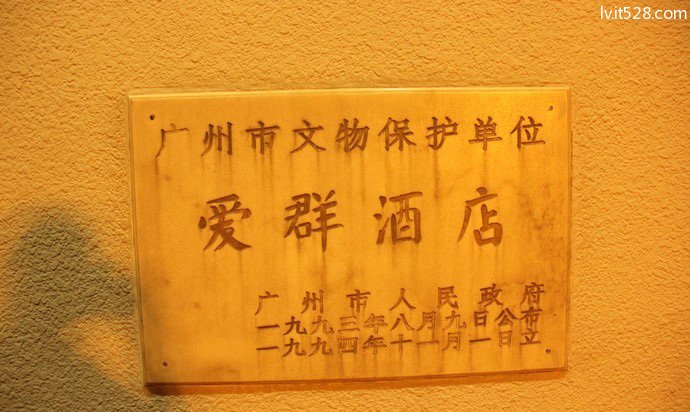 lv.it528.com
广州市文物保护单位
爱群酒店
广州市人民政府
一九九三年八月九日公布
一九九四年十一月一日立